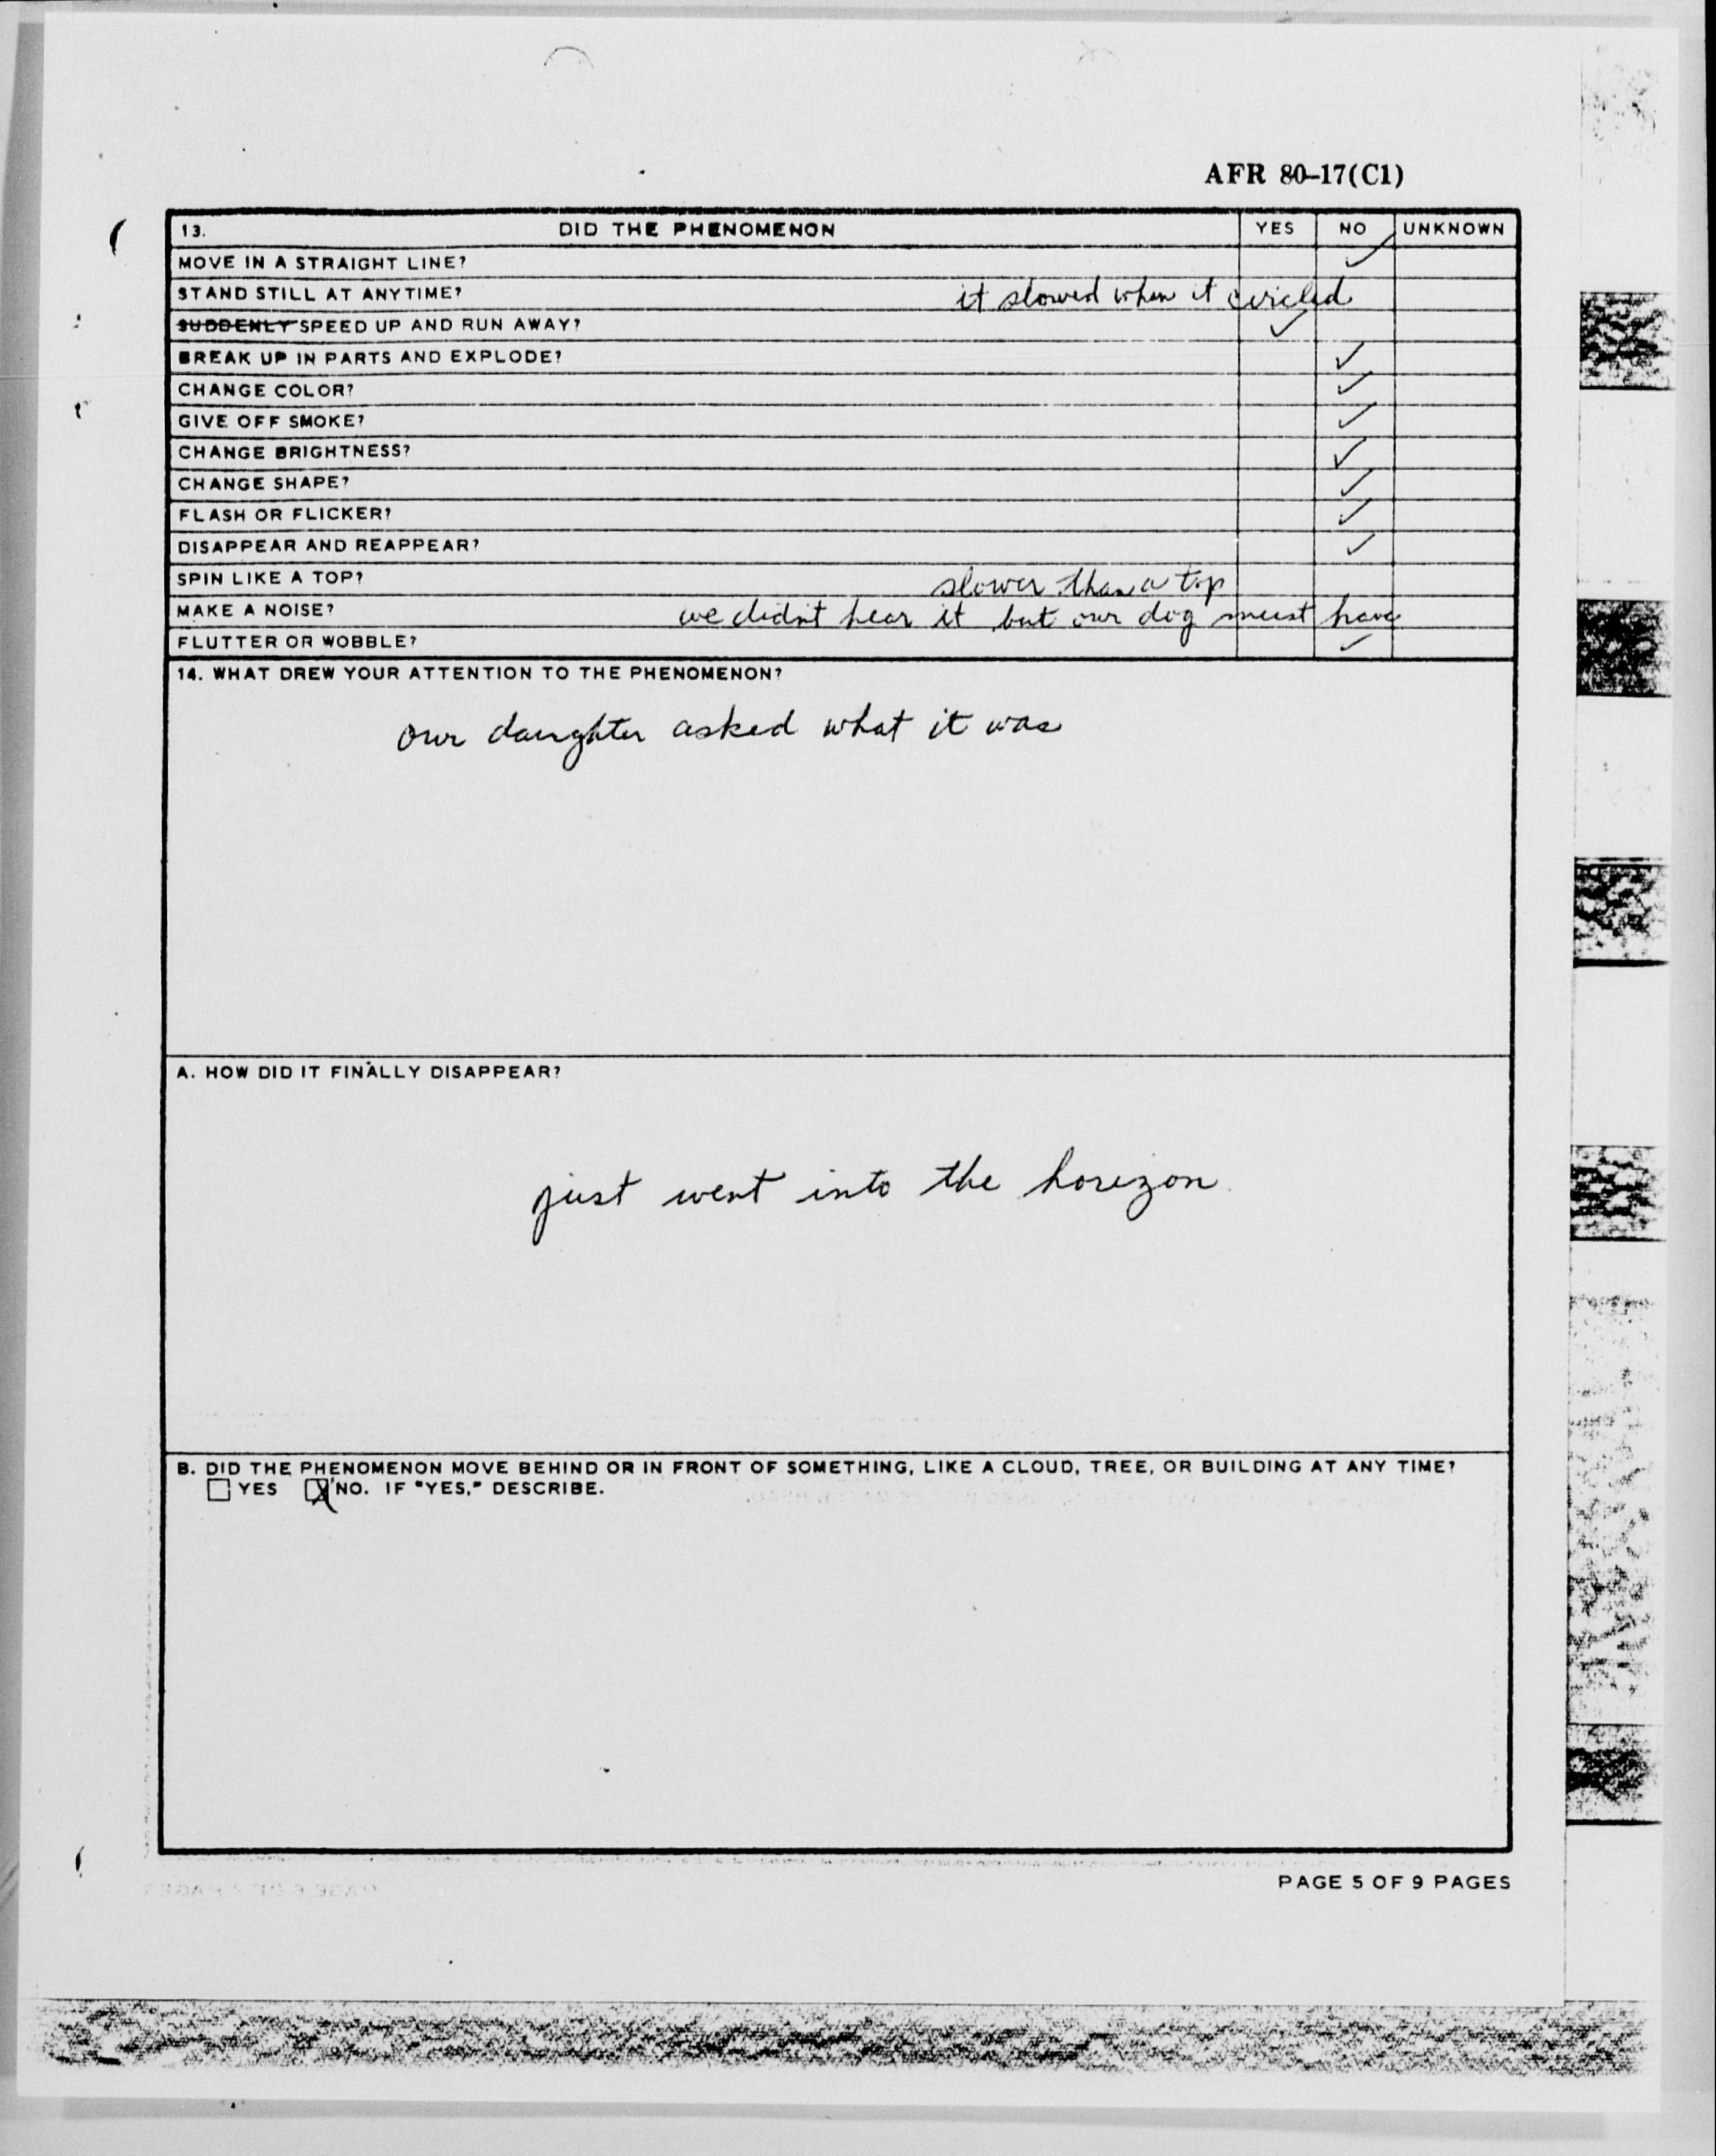 AFR 80-17(C1)
13. DID THE PHENOMENON YES NO UNKNOWN
MOVE IN A STRAIGHT LINE? ✓
STAND STILL AT ANYTIME? it slowed when it circled
SUDDENLY SPEED UP AND RUN AWAY? ✓
BREAK UP IN PARTS AND EXPLODE? ✓
CHANGE COLOR? ✓
GIVE OFF SMOKE? ✓
CHANGE BRIGHTNESS? ✓
CHANGE SHAPE? ✓
FLASH OR FLICKER? ✓
DISAPPEAR AND REAPPEAR? ✓
SPIN LIKE A TOP? slower than a top
MAKE A NOISE? we didn't hear it but our dog must have
FLUTTER OR WOBBLE? ✓
14. WHAT DREW YOUR ATTENTION TO THE PHENOMENON?
our daughter asked what it was
A. HOW DID IT FINALLY DISAPPEAR?
just went into the horizon
B. DID THE PHENOMENON MOVE BEHIND OR IN FRONT OF SOMETHING, LIKE A CLOUD, TREE, OR BUILDING AT ANY TIME?
☐ YES ☒ NO. IF "YES," DESCRIBE.
PAGE 5 OF 9 PAGES